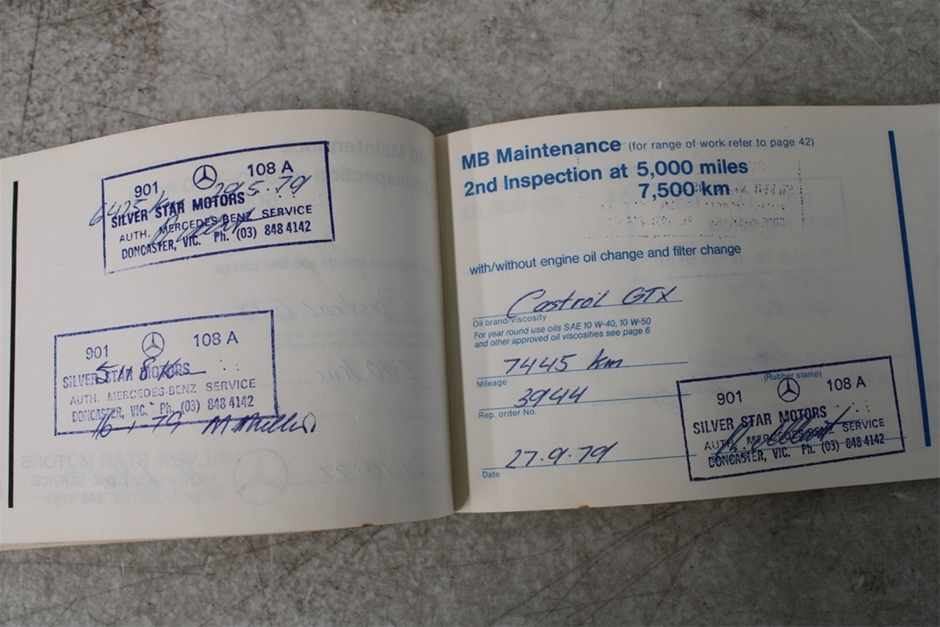 901 108 A
6475 km 29.5.79
SILVER STAR MOTORS
AUTH. MERCEDES-BENZ SERVICE
DONCASTER, VIC. Ph. (03) 848 4142
901 108 A
SILVER STAR MOTORS
AUTH. MERCEDES-BENZ SERVICE
DONCASTER, VIC. Ph. (03) 848 4142
16-1-79
MB Maintenance (for range of work refer to page 42)
2nd Inspection at 5,000 miles
7,500 km
with/without engine oil change and filter change
Castrol GTX
Oil brand/viscosity
For year round use oils SAE 10 W-40, 10 W-50
and other approved oil viscosities see page 6
7445 km
Mileage
3944
Rep. order No.
27.9.79
Date
(Rubber stamp)
901 108 A
SILVER STAR MOTORS
AUTH. MERCEDES-BENZ SERVICE
DONCASTER, VIC. Ph. (03) 848 4142